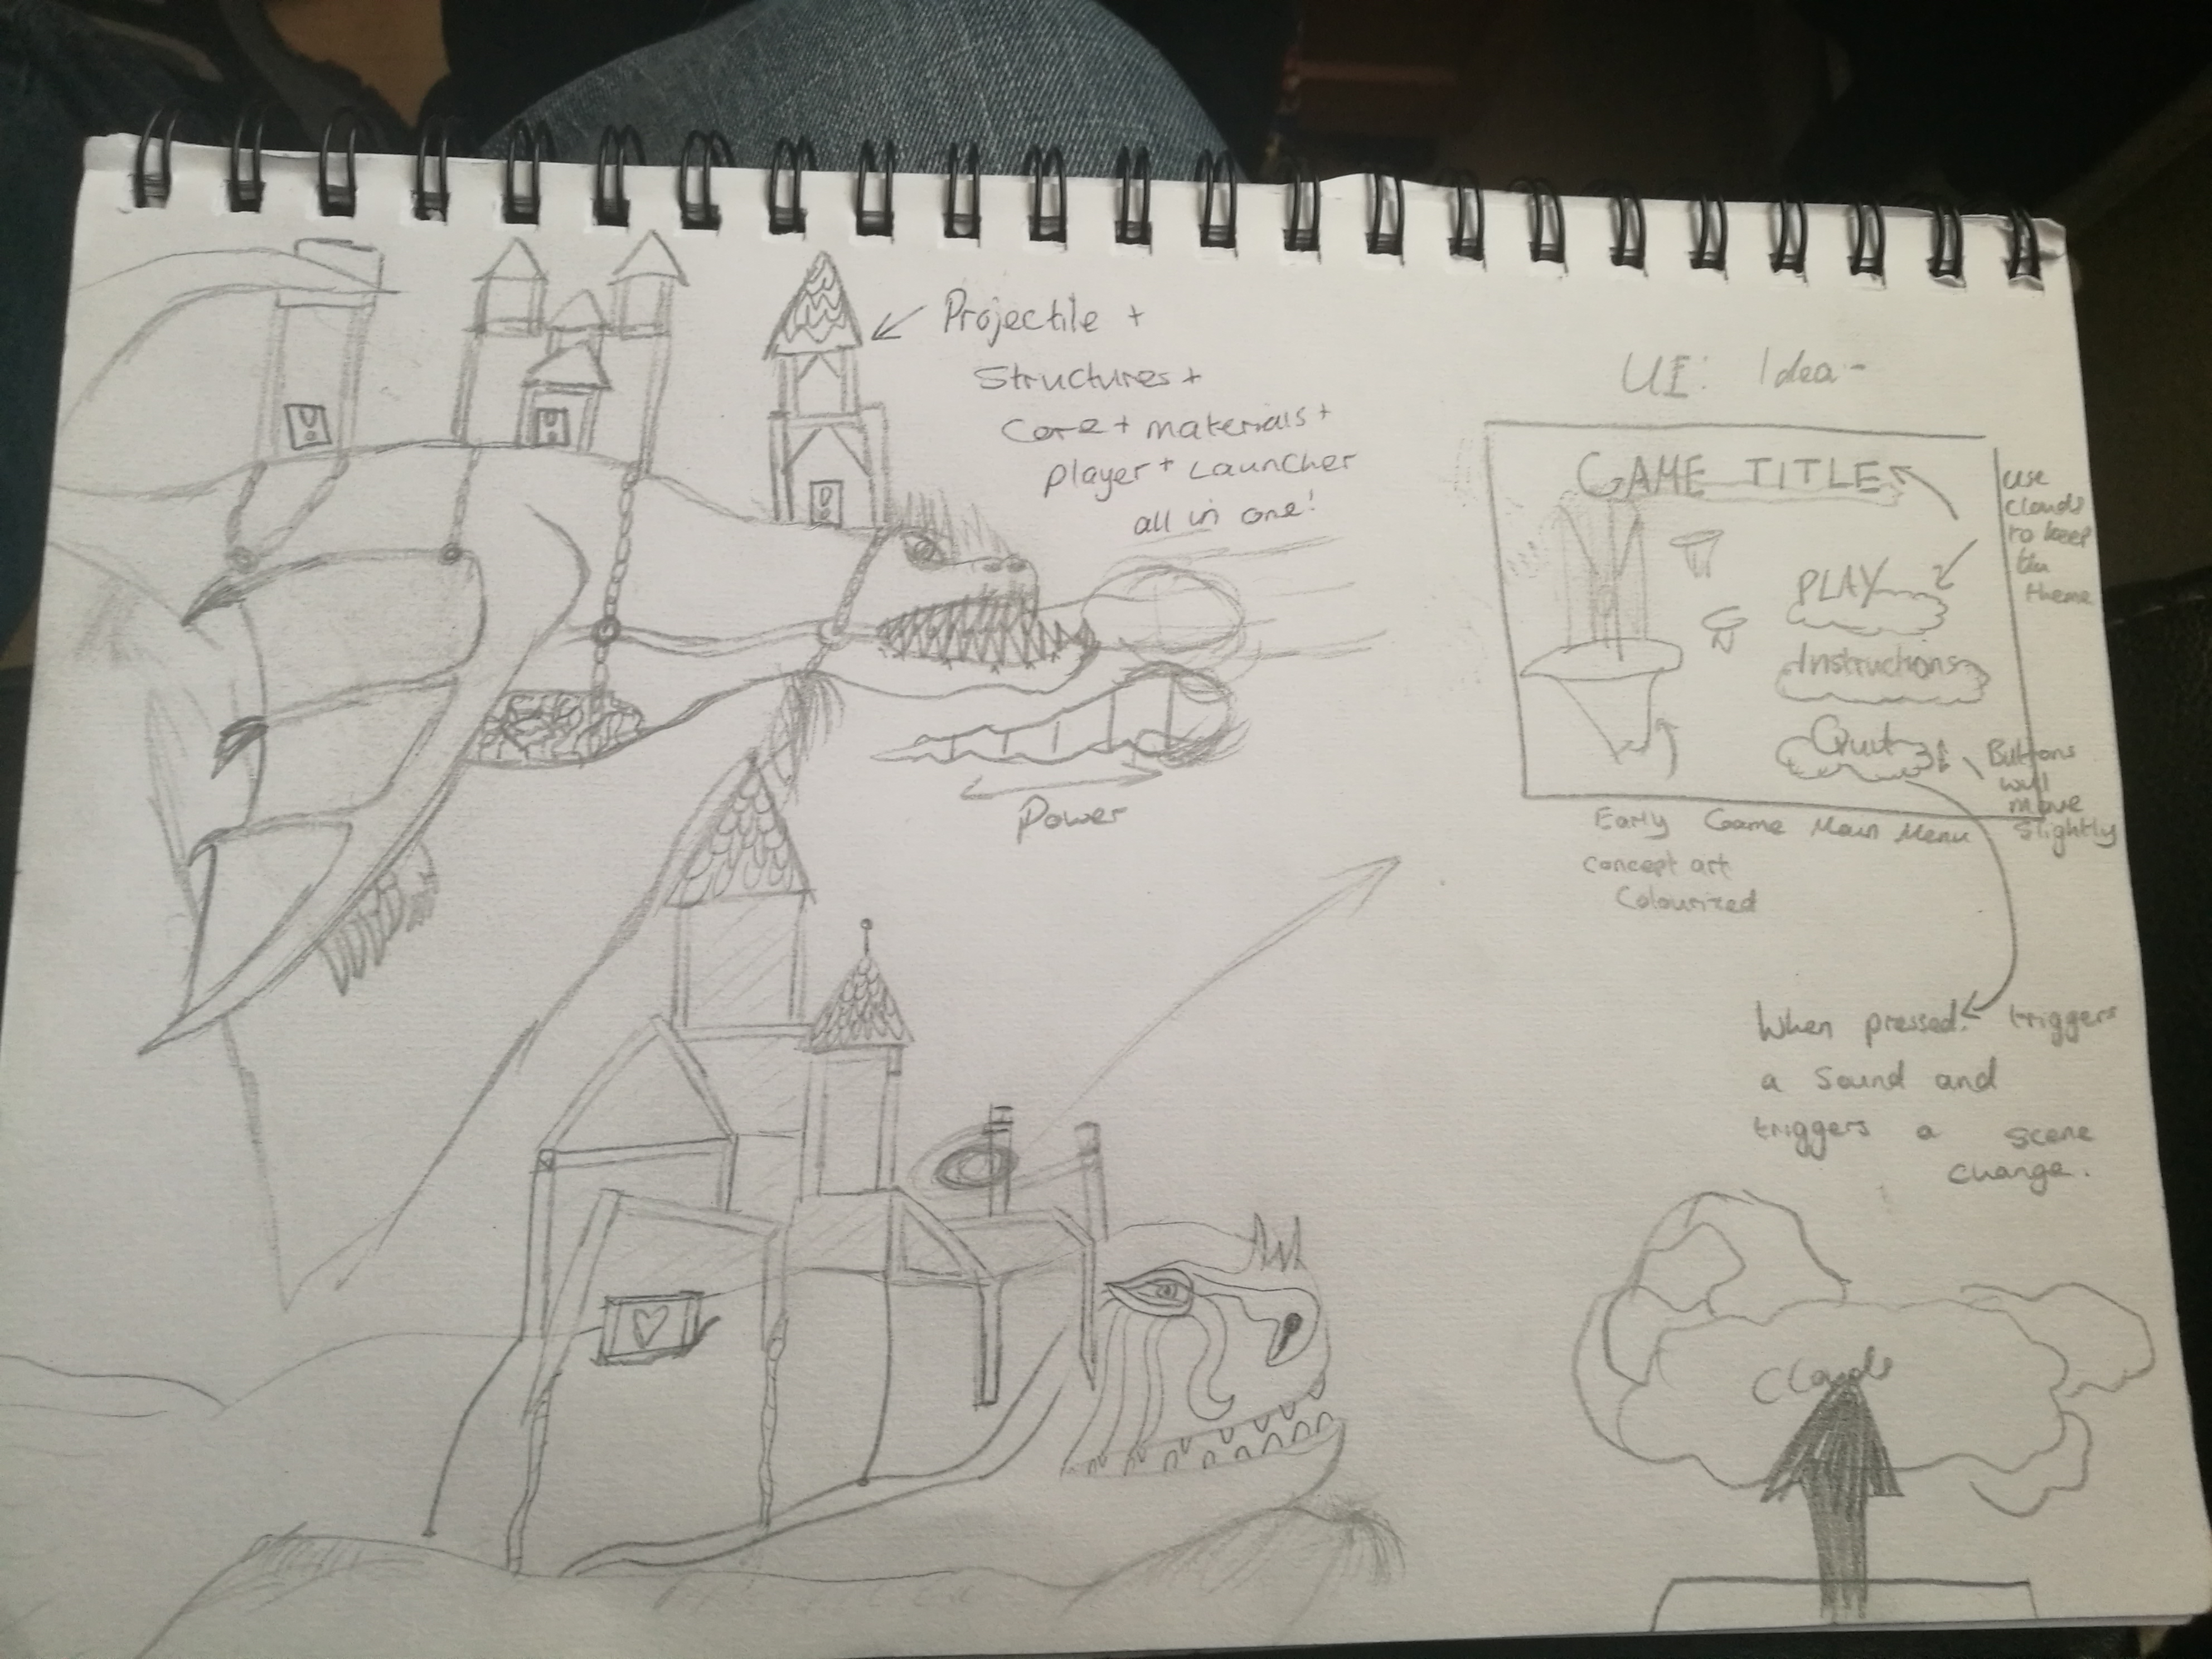 Projectile +
Structures +
Core + materials +
player + Launcher
all in one!
Power
UI: Idea -
GAME TITLE
use
clouds
to keep
the
theme
PLAY
Instructions
Quit
Buttons
will
move
slightly
Early Game Main Menu
concept art
Colourized
When pressed. triggers
a sound and
triggers a scene
change.